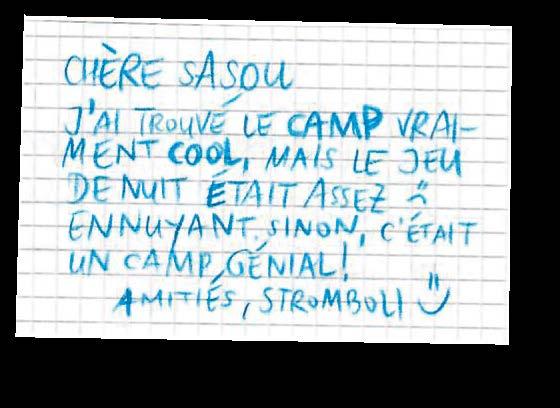 CHÈRE SASOU
J'AI TROUVÉ LE CAMP VRAI-
MENT COOL, MAIS LE JEU
DE NUIT ÉTAIT ASSEZ ☹
ENNUYANT. SINON, C'ÉTAIT
UN CAMP GÉNIAL!
AMITIÉS, STROMBOLI ☺